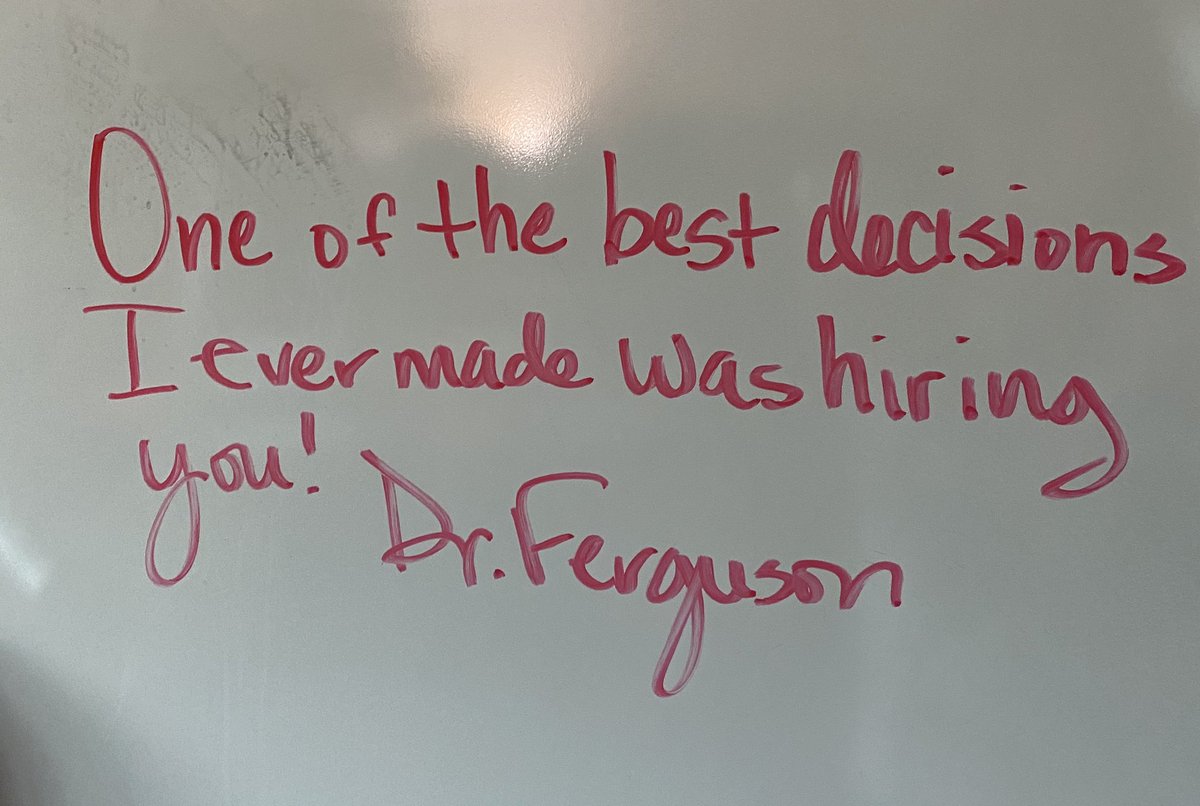 One of the best decisions
I ever made was hiring
you! Dr. Ferguson